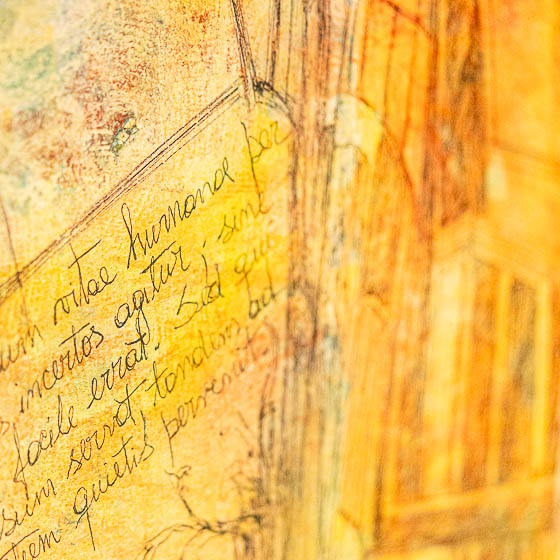 um vitae humanae per
incertos agitur, sint
facile errat. Sed qui
sum servat, tandem ad
tem quietis pervenit